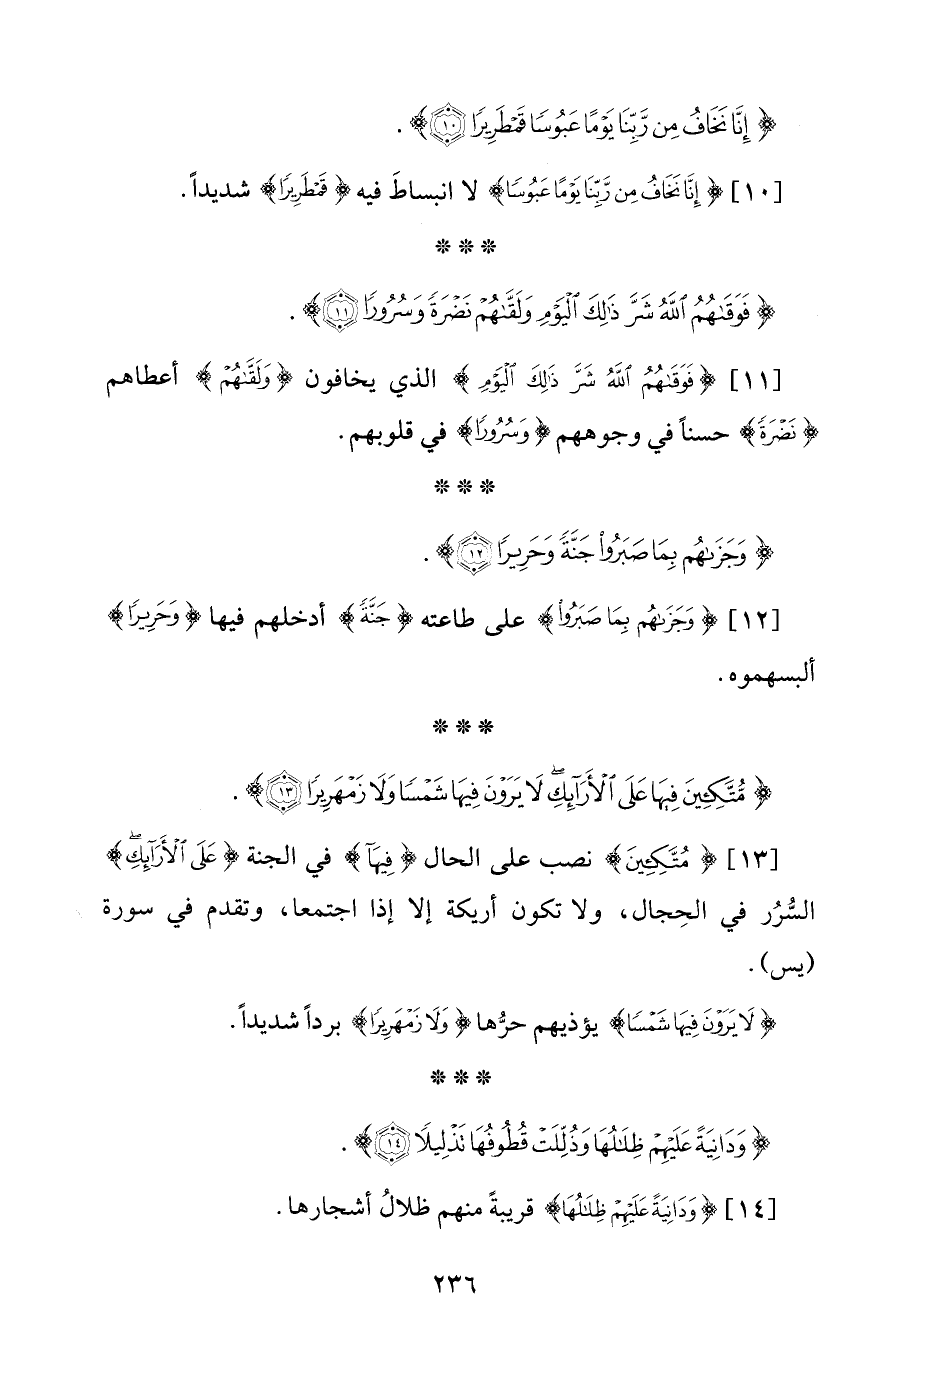 ﴿ إِنَّا نَخَافُ مِن رَّبِّنَا يَوْمًا عَبُوسًا قَمْطَرِيرًا ١٠ ﴾ .
[١٠] ﴿ إِنَّا نَخَافُ مِن رَّبِّنَا يَوْمًا عَبُوسًا﴾ لا انبساطَ فيه ﴿ قَمْطَرِيرًا﴾ شديداً .
* * *
﴿ فَوَقَىٰهُمُ ٱللَّهُ شَرَّ ذَٰلِكَ ٱلْيَوْمِ وَلَقَّىٰهُمْ نَضْرَةً وَسُرُورًا ١١ ﴾ .
[١١] ﴿ فَوَقَىٰهُمُ ٱللَّهُ شَرَّ ذَٰلِكَ ٱلْيَوْمِ ﴾ الذي يخافون ﴿ وَلَقَّىٰهُمْ ﴾ أعطاهم
﴿ نَضْرَةً﴾ حسناً في وجوههم ﴿ وَسُرُورًا﴾ في قلوبهم .
* * *
﴿ وَجَزَىٰهُم بِمَا صَبَرُوا۟ جَنَّةً وَحَرِيرًا ١٢ ﴾ .
[١٢] ﴿ وَجَزَىٰهُم بِمَا صَبَرُوا۟﴾ على طاعته ﴿ جَنَّةً﴾ أدخلهم فيها ﴿ وَحَرِيرًا﴾
ألبسهموه .
* * *
﴿ مُّتَّكِـِٔينَ فِيهَا عَلَى ٱلْأَرَآئِكِ ۖ لَا يَرَوْنَ فِيهَا شَمْسًا وَلَا زَمْهَرِيرًا ١٣ ﴾ .
[١٣] ﴿ مُّتَّكِـِٔينَ﴾ نصب على الحال ﴿ فِيهَا﴾ في الجنة ﴿ عَلَى ٱلْأَرَآئِكِ ۖ﴾
السُّرُر في الحِجال، ولا تكون أريكة إلا إذا اجتمعا، وتقدم في سورة
(يس) .
﴿ لَا يَرَوْنَ فِيهَا شَمْسًا﴾ يؤذيهم حرُّها ﴿ وَلَا زَمْهَرِيرًا﴾ برداً شديداً .
* * *
﴿ وَدَانِيَةً عَلَيْهِمْ ظِلَٰلُهَا وَذُلِّلَتْ قُطُوفُهَا تَذْلِيلًا ١٤ ﴾ .
[١٤] ﴿ وَدَانِيَةً عَلَيْهِمْ ظِلَٰلُهَا﴾ قريبةً منهم ظلالُ أشجارها .
٢٣٦